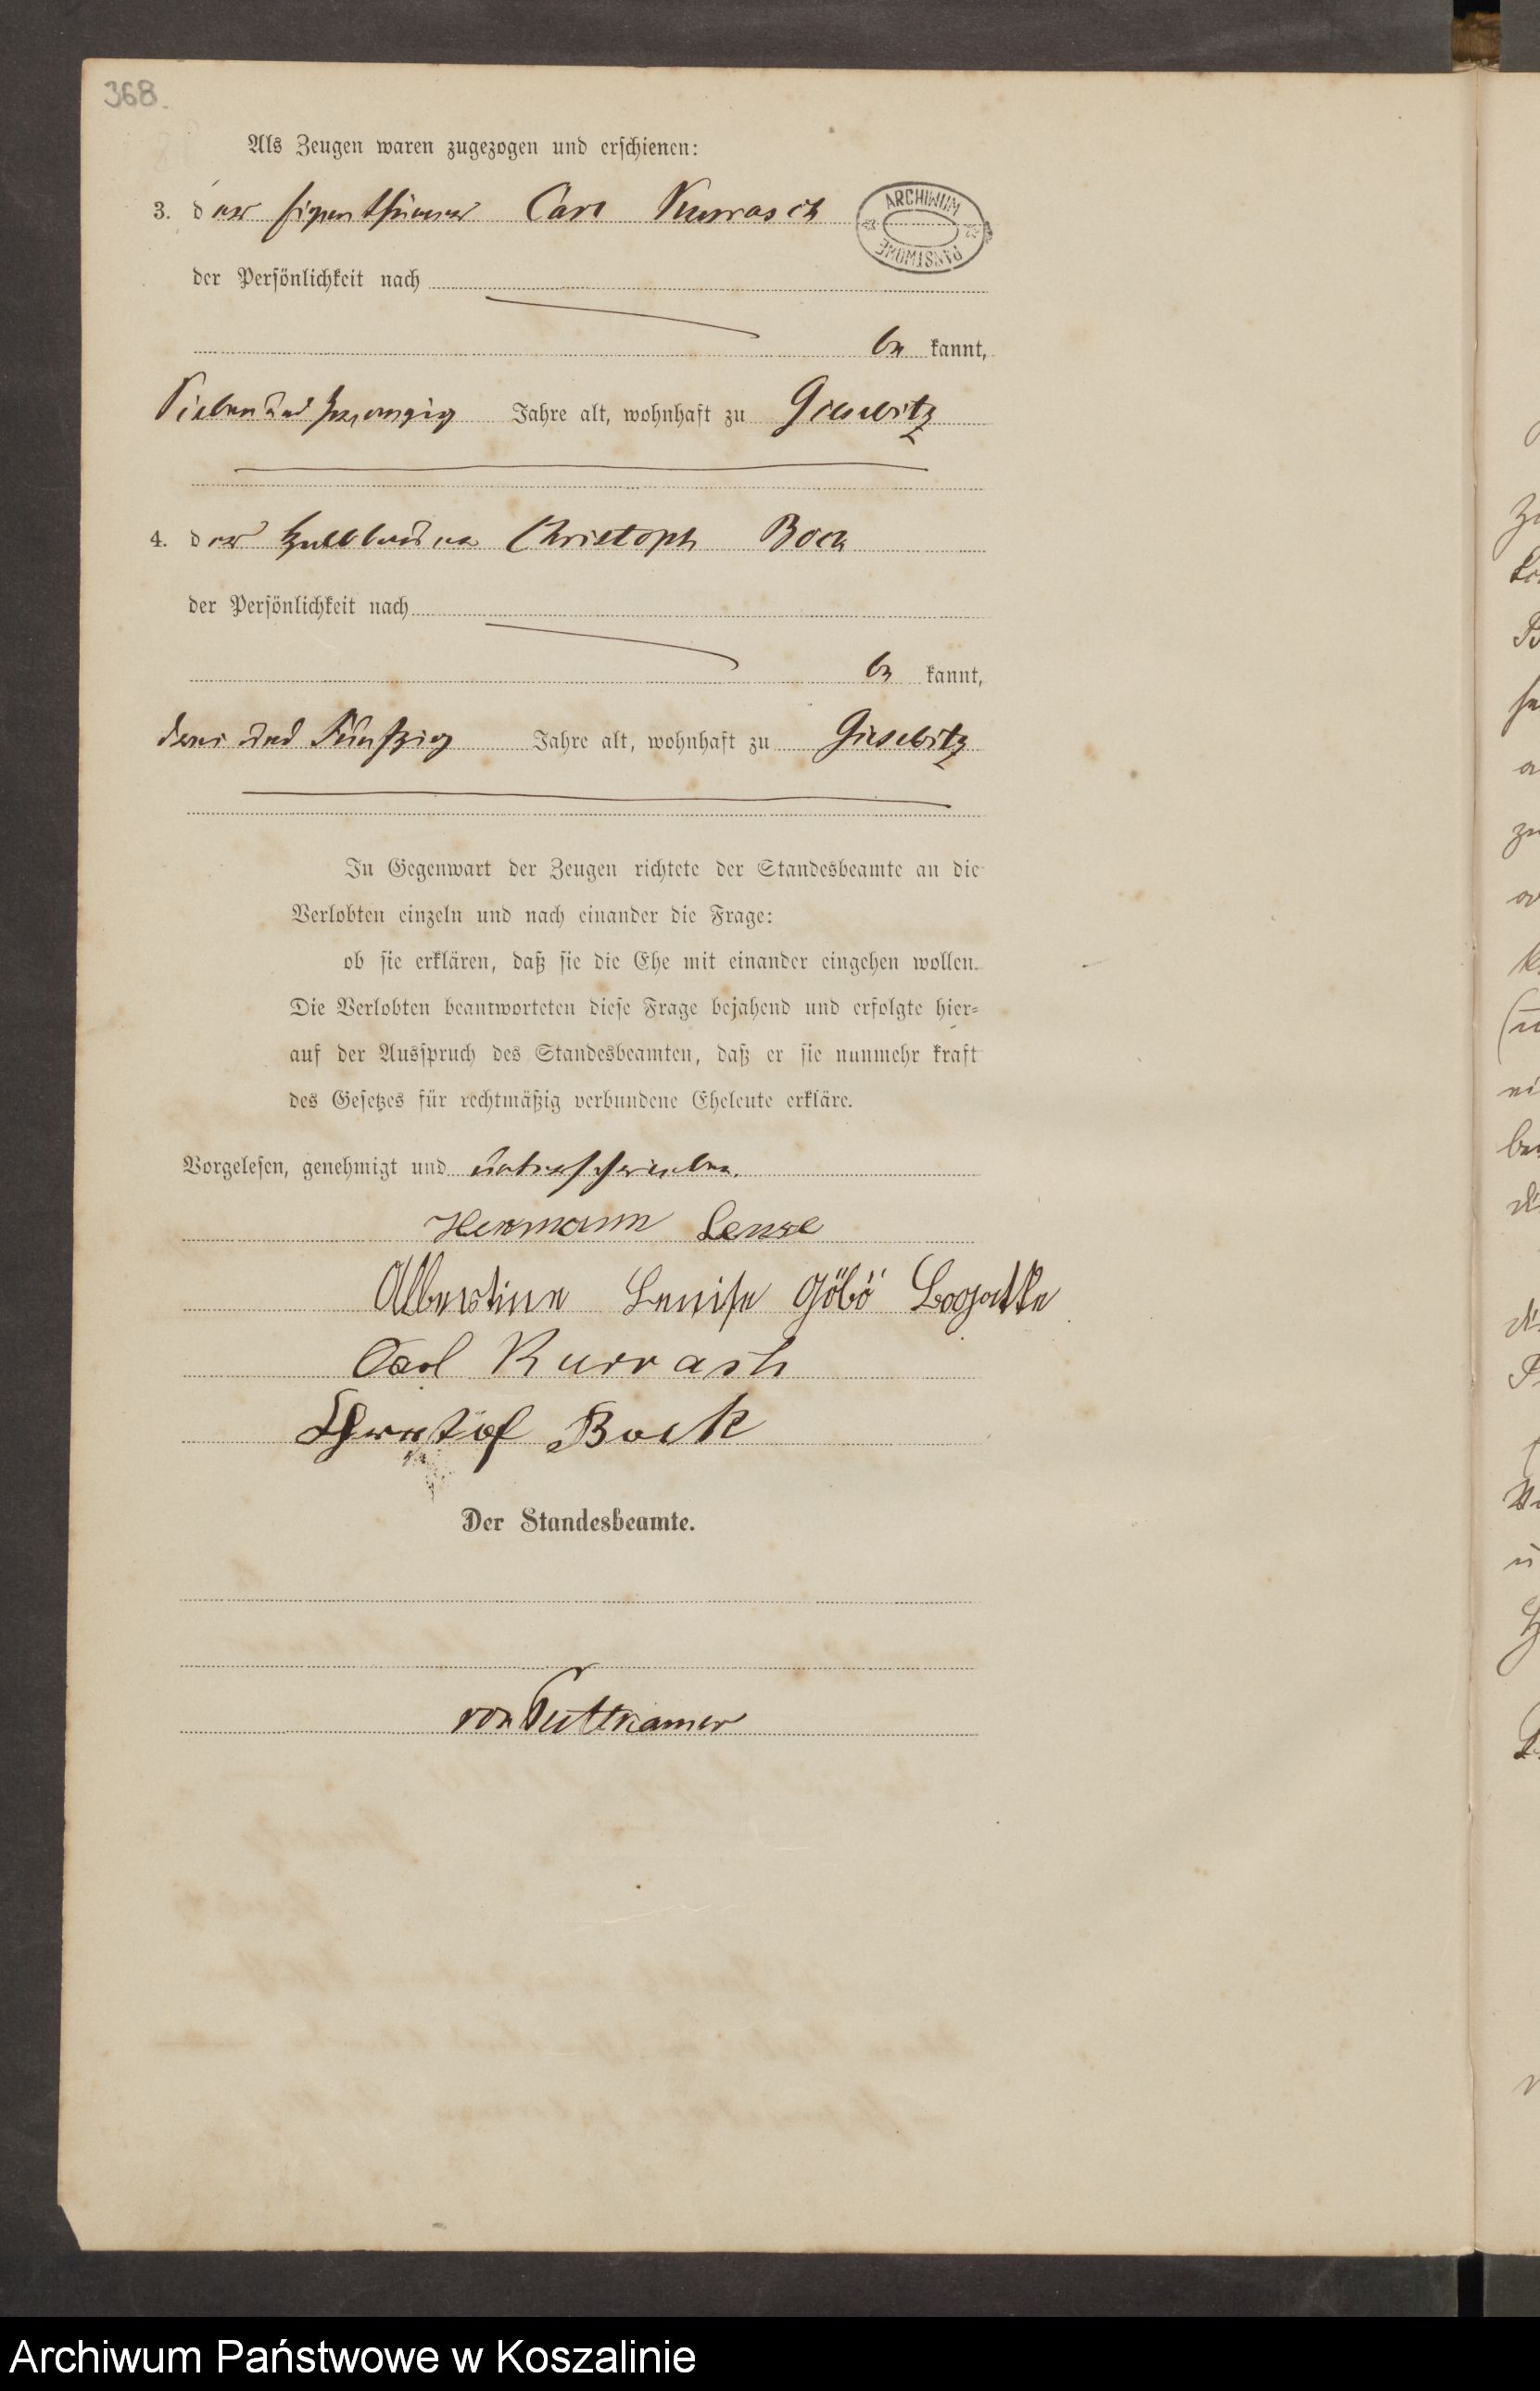 368.
Als Zeugen waren zugezogen und erschienen:
3. der Eigenthümer Carl Kurrasch
ARCHIWUM PAŃSTWOWE
der Persönlichkeit nach
be kannt,
Sieben und zwanzig Jahre alt, wohnhaft zu Giesebitz
4. der Christoph Bock
der Persönlichkeit nach
be kannt,
drei und Fünfzig Jahre alt, wohnhaft zu Giesebitz
In Gegenwart der Zeugen richtete der Standesbeamte an die
Verlobten einzeln und nach einander die Frage:
ob sie erklären, daß sie die Ehe mit einander eingehen wollen.
Die Verlobten beantworteten diese Frage bejahend und erfolgte hier-
auf der Ausspruch des Standesbeamten, daß er sie nunmehr kraft
des Gesetzes für rechtmäßig verbundene Eheleute erkläre.
Vorgelesen, genehmigt und unterschrieben.
Hermann
Albertine Louise
Carl Kurrash
Bock
Der Standesbeamte.
von Puttkamer
Archiwum Państwowe w Koszalinie